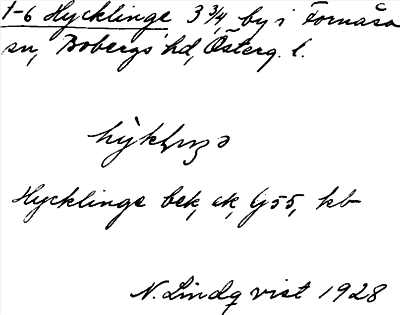 1-6 Hycklinge 3 3/4, by i Fornåsa
sn, Bobergs hd, Österg. l.
Hycklinge bek, ck, G 55, kb
N. Lindqvist 1928